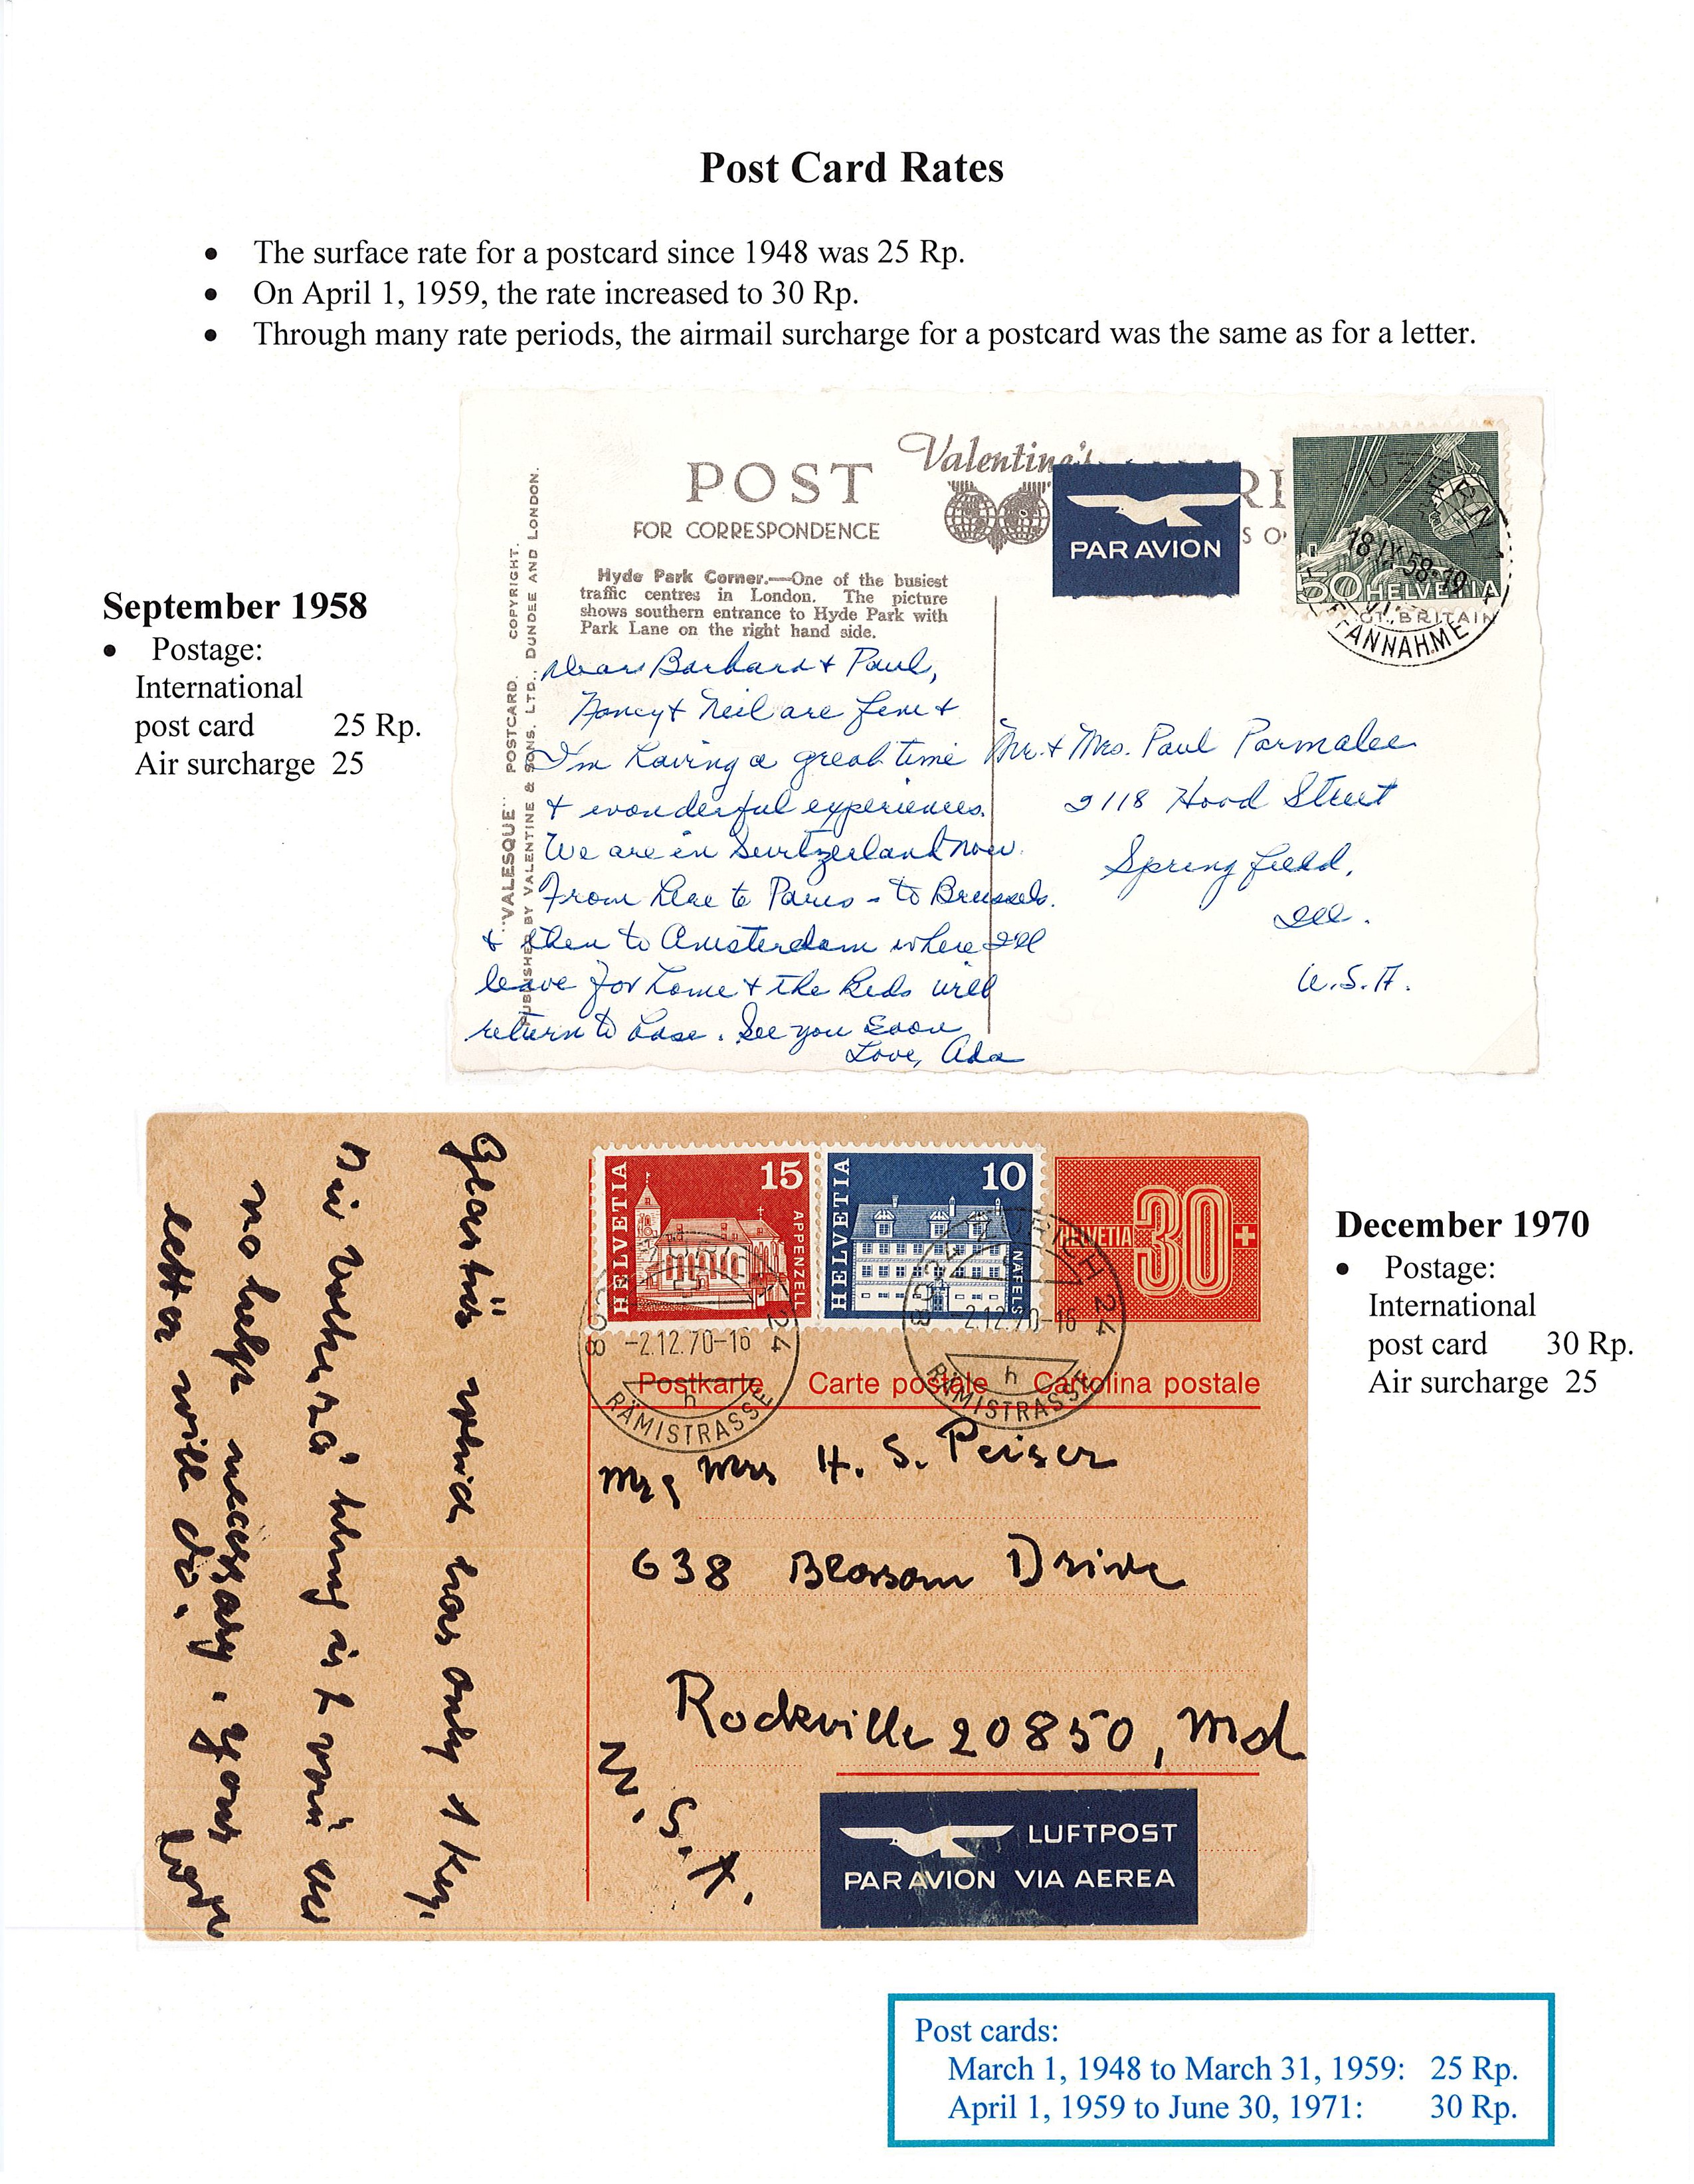 Post Card Rates
• The surface rate for a postcard since 1948 was 25 Rp.
• On April 1, 1959, the rate increased to 30 Rp.
• Through many rate periods, the airmail surcharge for a postcard was the same as for a letter.
September 1958
• Postage:
International
post card 25 Rp.
Air surcharge 25
Valentine's
POST
FOR CORRESPONDENCE
PAR AVION
Hyde Park Corner.—One of the busiest
traffic centres in London. The picture
shows southern entrance to Hyde Park with
Park Lane on the right hand side.
"VALESQUE" POSTCARD. COPYRIGHT.
PUBLISHED BY VALENTINE & SONS. LTD., DUNDEE AND LONDON.
50 HELVETIA
18.IX.58-19
GT. BRITAIN
ANNAHME
Dear Barbara & Paul,
Nancy & Neil are fine &
I'm having a great time
& wonderful experiences.
We are in Switzerland now.
From here to Paris - to Brussels.
& then to Amsterdam where I'll
leave for home & the kids will
return to base. See you soon
Love, Ada
Mr. & Mrs. Paul Parmalee
2118 Hood Street
Springfield,
Ill.
U.S.A.
HELVETIA 15 APPENZELL
HELVETIA 10 NÄFELS
HELVETIA 30
8028 ZÜRICH 24
-2.12.70-16
h
RÄMISTRASSE
8028 ZÜRICH 24
-2.12.70-16
h
RÄMISTRASSE
Postkarte Carte postale Cartolina postale
Mr & Mrs H. S. Peiser
638 Blossom Drive
Rockville 20850, Md
U.S.A.
has only 1 key,
no help necessary. Your
letter will do.
LUFTPOST
PAR AVION VIA AEREA
December 1970
• Postage:
International
post card 30 Rp.
Air surcharge 25
Post cards:
March 1, 1948 to March 31, 1959: 25 Rp.
April 1, 1959 to June 30, 1971: 30 Rp.